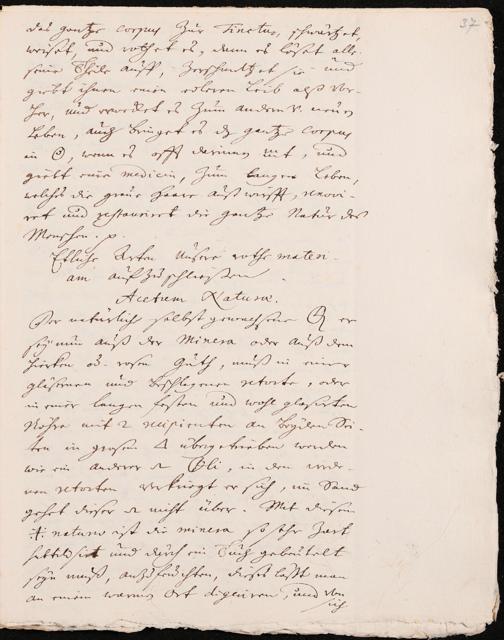 37
das gantze corpus zur Tinctur, schwärtzet,
weiset, und röthet es, dann es löset alle
seine Theile auff, und
giebt ihnen einen edleren Leib alß vor-
her, und erwecket es zum andern v. neuen
Leben, auch bringet es dz gantze corpus
in ☉, wenn es offt darinnen, und
giebt eine medicin, zum langen Leben,
welche die graue Haare außwirfft, renovi-
ret und restauriret die gantze Natur des
Menschen. p.
Etliche Arten unsere rothe materi-
am auffzuschließen.
Acetum Naturæ.
Der natürlich selbst gewachsene er
sey nun auß der Minera oder auß dem
guth, muß in einer
gläsernen und beschlagenen retorte, oder
in einer langen festen und wohl glasirten
Röhre mit 2 recipienten an beyden Sei-
ten in großem △ übergetrieben werden
wie ein anderer Oli, in den
retorten verkriegt er sich, im Sand
gehet dieser nicht über. Mit diesem
naturæ ist die minera so sehr zart
und durch ein Tuch gebeutelt
seyn muß, anzufeuchten, dieses läßt man
an einem warmen Ort digeriren, und von
sich